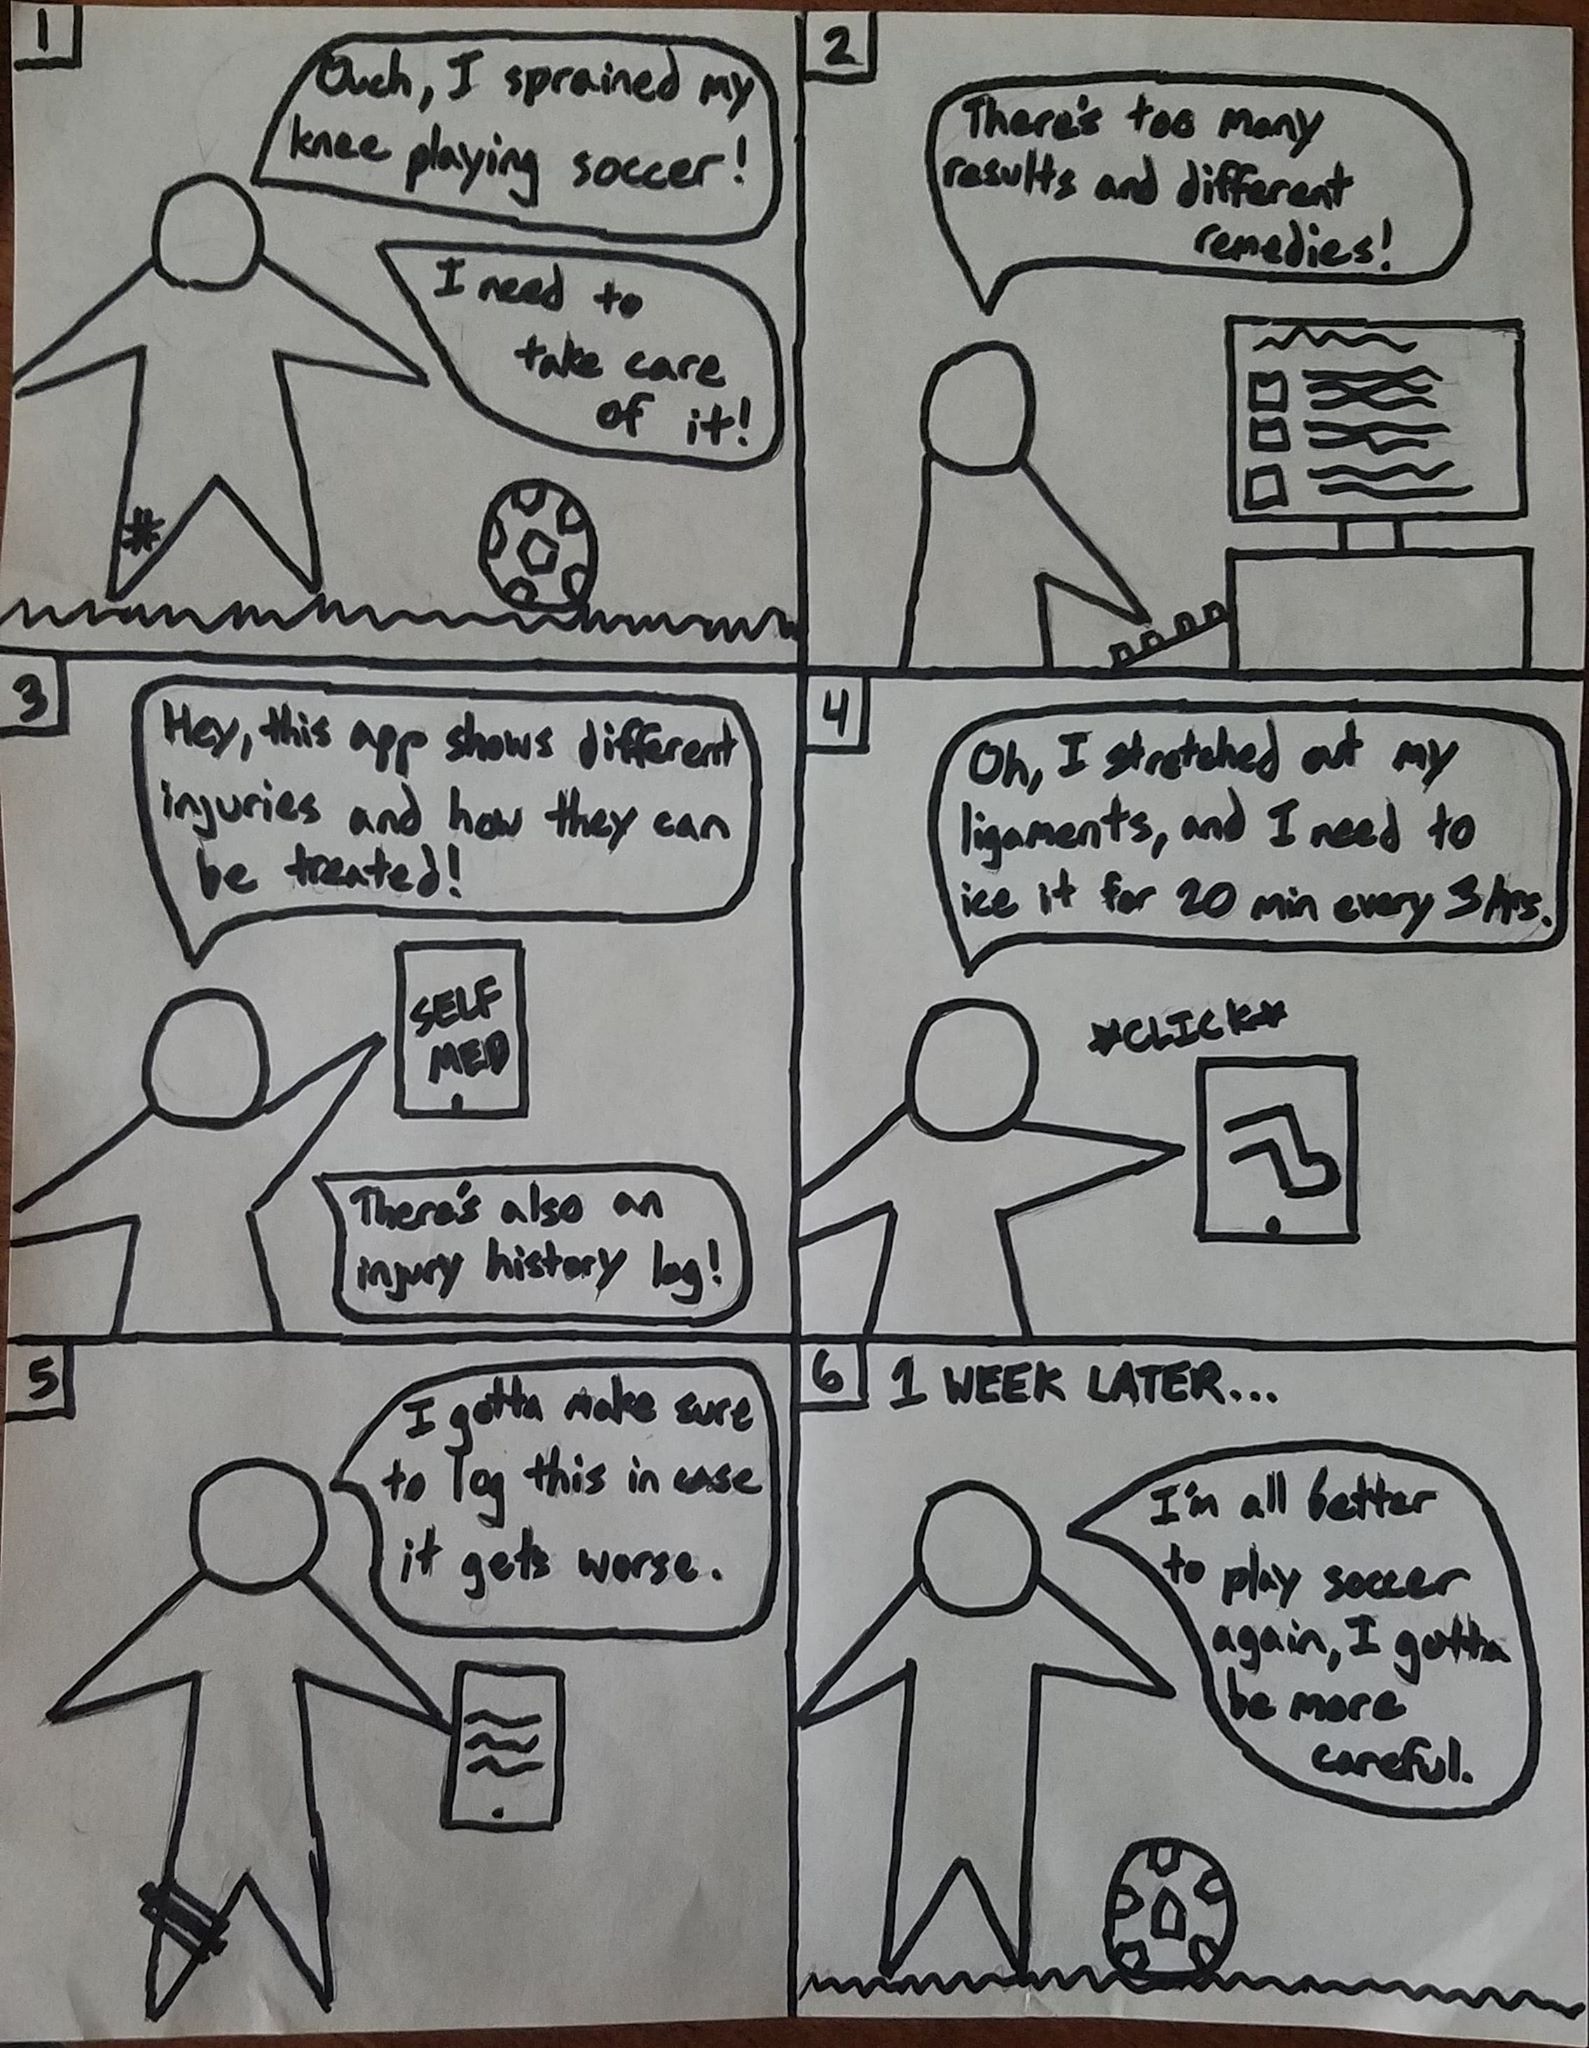 1
Ouch, I sprained my
knee playing soccer!
I need to
take care
of it!
2
There's too many
results and different
remedies!
3
Hey, this app shows different
injuries and how they can
be treated!
SELF
MED
There's also an
injury history log!
4
Oh, I stretched out my
ligaments, and I need to
ice it for 20 min every 3 hrs.
*CLICK*
5
I gotta make sure
to log this in case
it gets worse.
6
1 WEEK LATER...
I'm all better
to play soccer
again, I gotta
be more
careful.